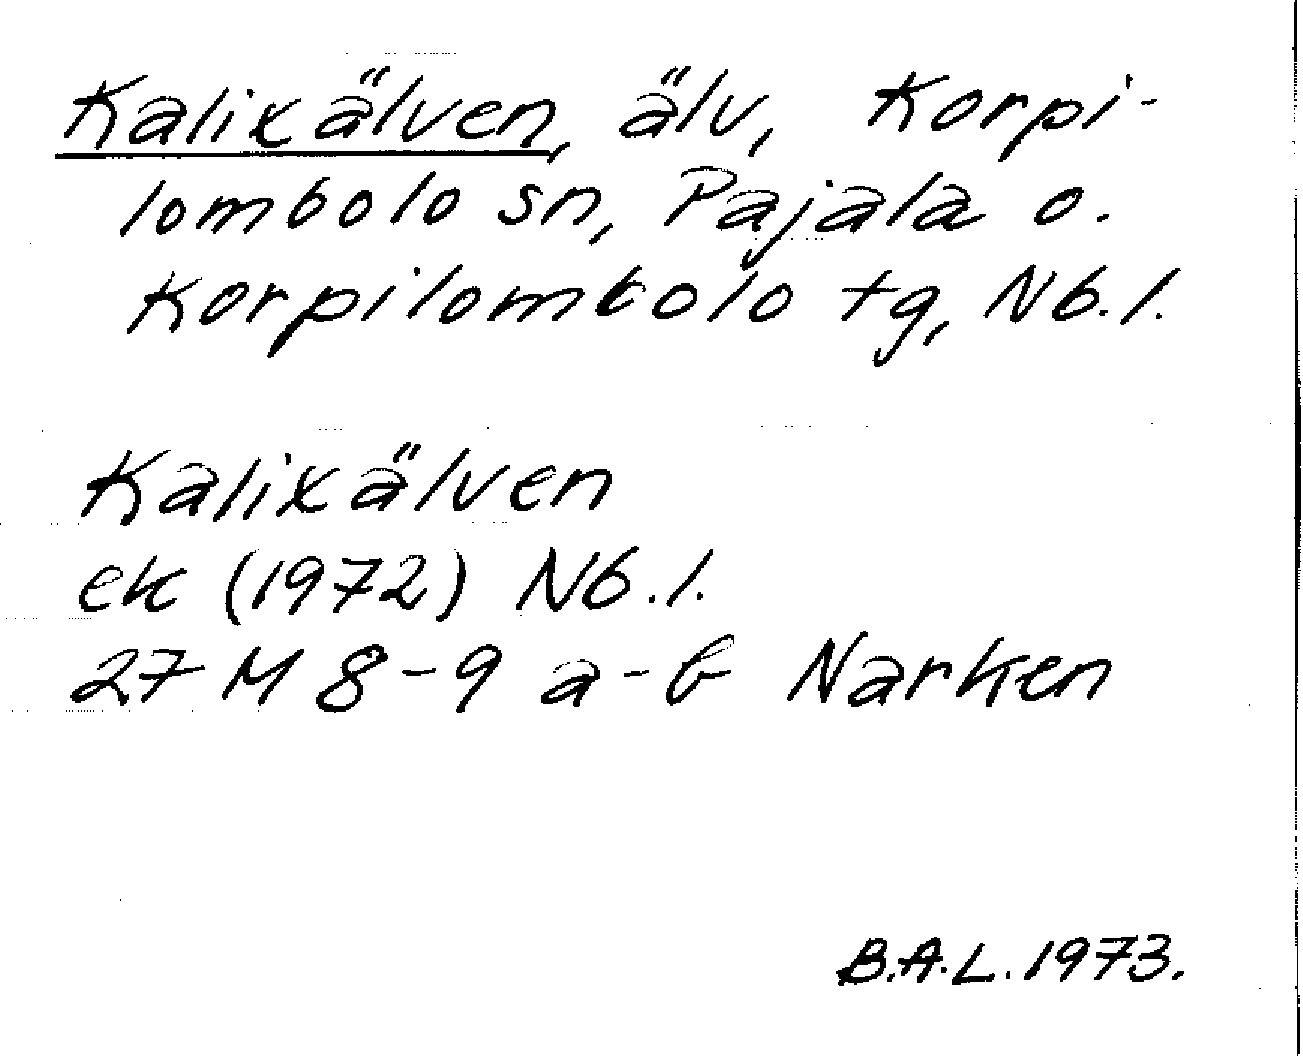 Kalixälven, älv, Korpi-
lombolo sn, Pajala o.
Korpilombolo tg, Nb.l.
Kalixälven
ek (1972) Nb.l.
27 M 8-9 a-b Narken
B.A.L. 1973.